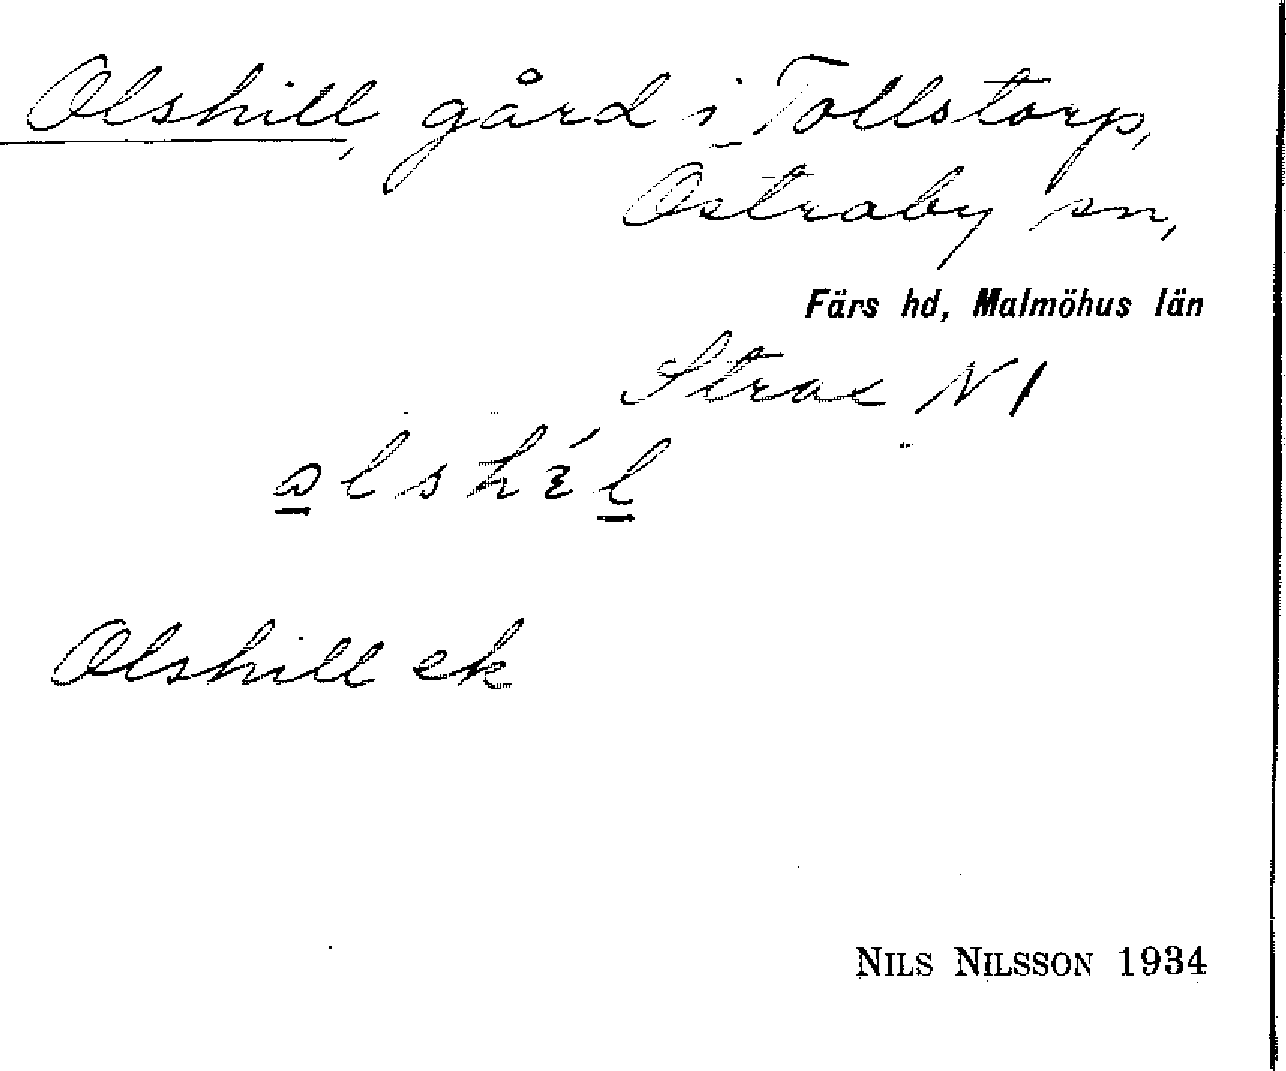 Olshill, gård i Tollstorp,
Östraby sn,
Färs hd, Malmöhus län
Strax N 1
Olshill ek
NILS NILSSON 1934